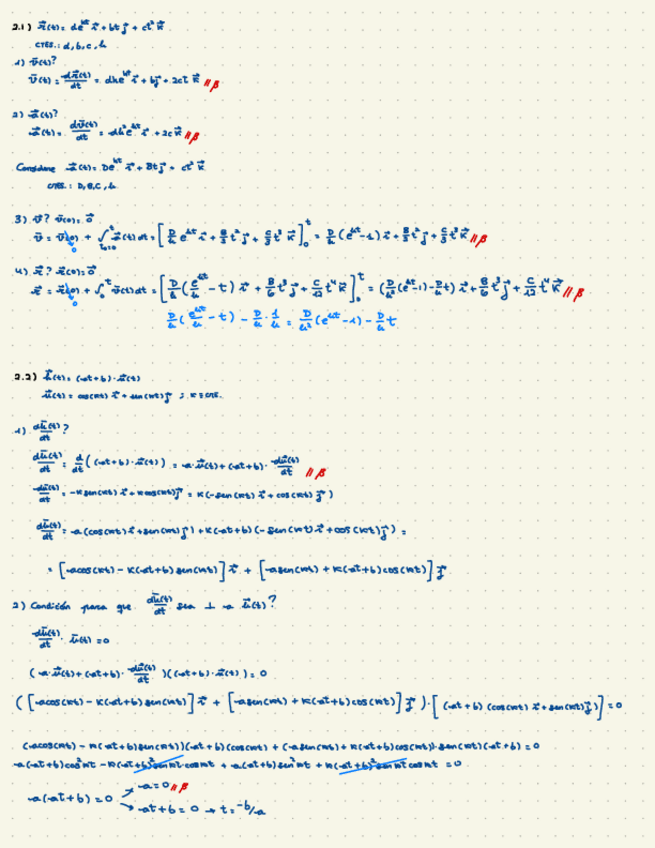 2.1) r⃗(t) = de^(kt) i⃗ + bt j⃗ + ct² k⃗
CTES.: d, b, c, k
1) v⃗(t)?
v⃗(t) = dr⃗(t)/dt = dke^(kt) i⃗ + bj⃗ + 2ct k⃗ //β
2) a⃗(t)?
a⃗(t) = dv⃗(t)/dt = dk²e^(kt) i⃗ + 2c k⃗ //β
Considere a⃗(t) = De^(kt) i⃗ + Bt j⃗ + ct² k⃗
CTES.: D, B, C, k
3) v⃗? v⃗(0) = 0⃗
v⃗ = v⃗(0) + ∫ a⃗(t) dt = [D/k e^(kt) i⃗ + B/2 t² j⃗ + C/3 t³ k⃗]₀ᵗ = D/k (e^(kt) - 1) i⃗ + B/2 t² j⃗ + C/3 t³ k⃗ //β
4) r⃗? r⃗(0) = 0⃗
r⃗ = r⃗(0) + ∫₀ᵗ v⃗(t) dt = [D/k (e^(kt)/k - t) i⃗ + B/6 t³ j⃗ + C/12 t⁴ k⃗]₀ᵗ = (D/k² (e^(kt) - 1) - D/k t) i⃗ + B/6 t³ j⃗ + C/12 t⁴ k⃗ //β
D/k (e^(kt)/k - t) - D/k · 1/k = D/k² (e^(kt) - 1) - D/k t
2.2) h⃗(t) = (at + b) · u⃗(t)
u⃗(t) = cos(kt) i⃗ + sen(kt) j⃗ ; k = cte.
1) dh⃗(t)/dt ?
dh⃗(t)/dt = d/dt ((at + b) · u⃗(t)) = a · u⃗(t) + (at + b) · du⃗(t)/dt //β
du⃗(t)/dt = -k sen(kt) i⃗ + k cos(kt) j⃗ = k(-sen(kt) i⃗ + cos(kt) j⃗)
dh⃗(t)/dt = a(cos(kt) i⃗ + sen(kt) j⃗) + k(at + b)(-sen(kt) i⃗ + cos(kt) j⃗) =
= [a cos(kt) - k(at + b) sen(kt)] i⃗ + [a sen(kt) + k(at + b) cos(kt)] j⃗
2) Condición para que dh⃗(t)/dt sea ⊥ a h⃗(t)?
dh⃗(t)/dt · h⃗(t) = 0
(a · u⃗(t) + (at + b) · du⃗(t)/dt)((at + b) · u⃗(t)) = 0
([a cos(kt) - k(at + b) sen(kt)] i⃗ + [a sen(kt) + k(at + b) cos(kt)] j⃗) · [(at + b)(cos(kt) i⃗ + sen(kt) j⃗)] = 0
(a cos(kt) - k(at + b) sen(kt))(at + b)(cos(kt) + (a sen(kt) + k(at + b) cos(kt)) · sen(kt)(at + b) = 0
a(at + b) cos² kt - k(at + b)² sen kt cos kt + a(at + b) sen² kt + k(at + b)² sen kt cos kt = 0
a(at + b) = 0 → a = 0 //β
→ at + b = 0 → t = -b/a